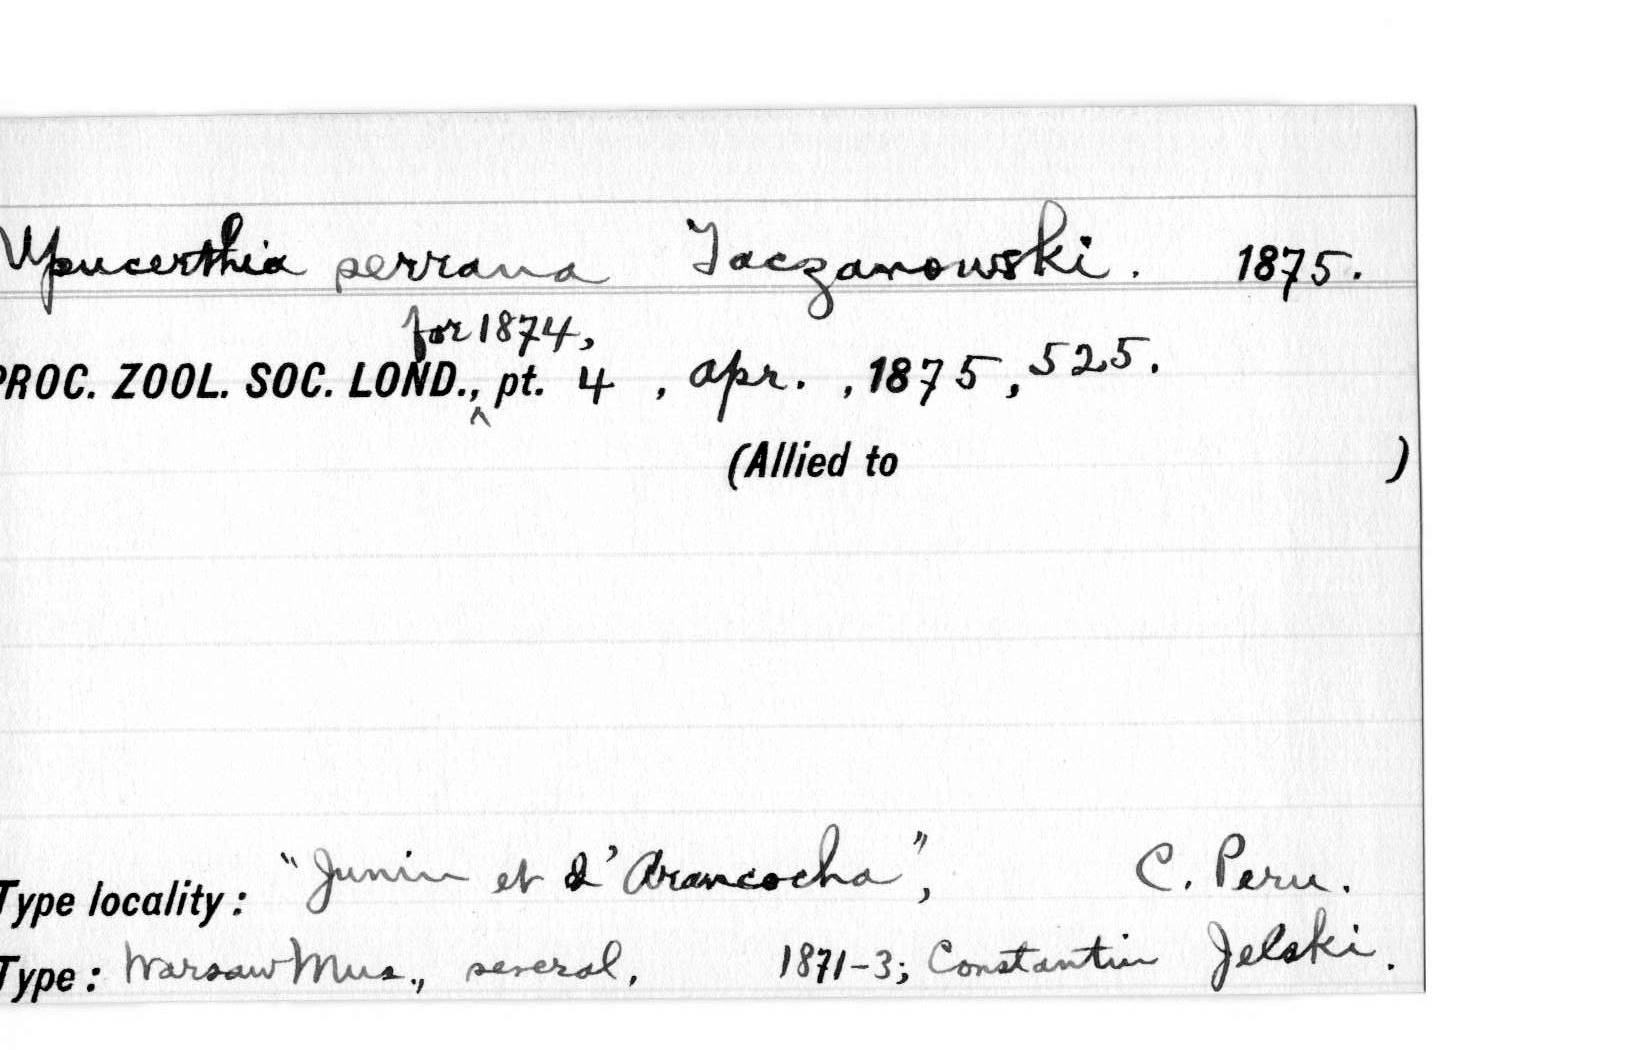 Upucerthia serrana Taczanowski. 1875.
for 1874,
PROC. ZOOL. SOC. LOND.,^ pt. 4, Apr., 1875, 525.
(Allied to )
Type locality: "Junin et d'Arancocha", C. Peru.
Type: Warsaw Mus., several, 1871-3; Constantin Jelski.